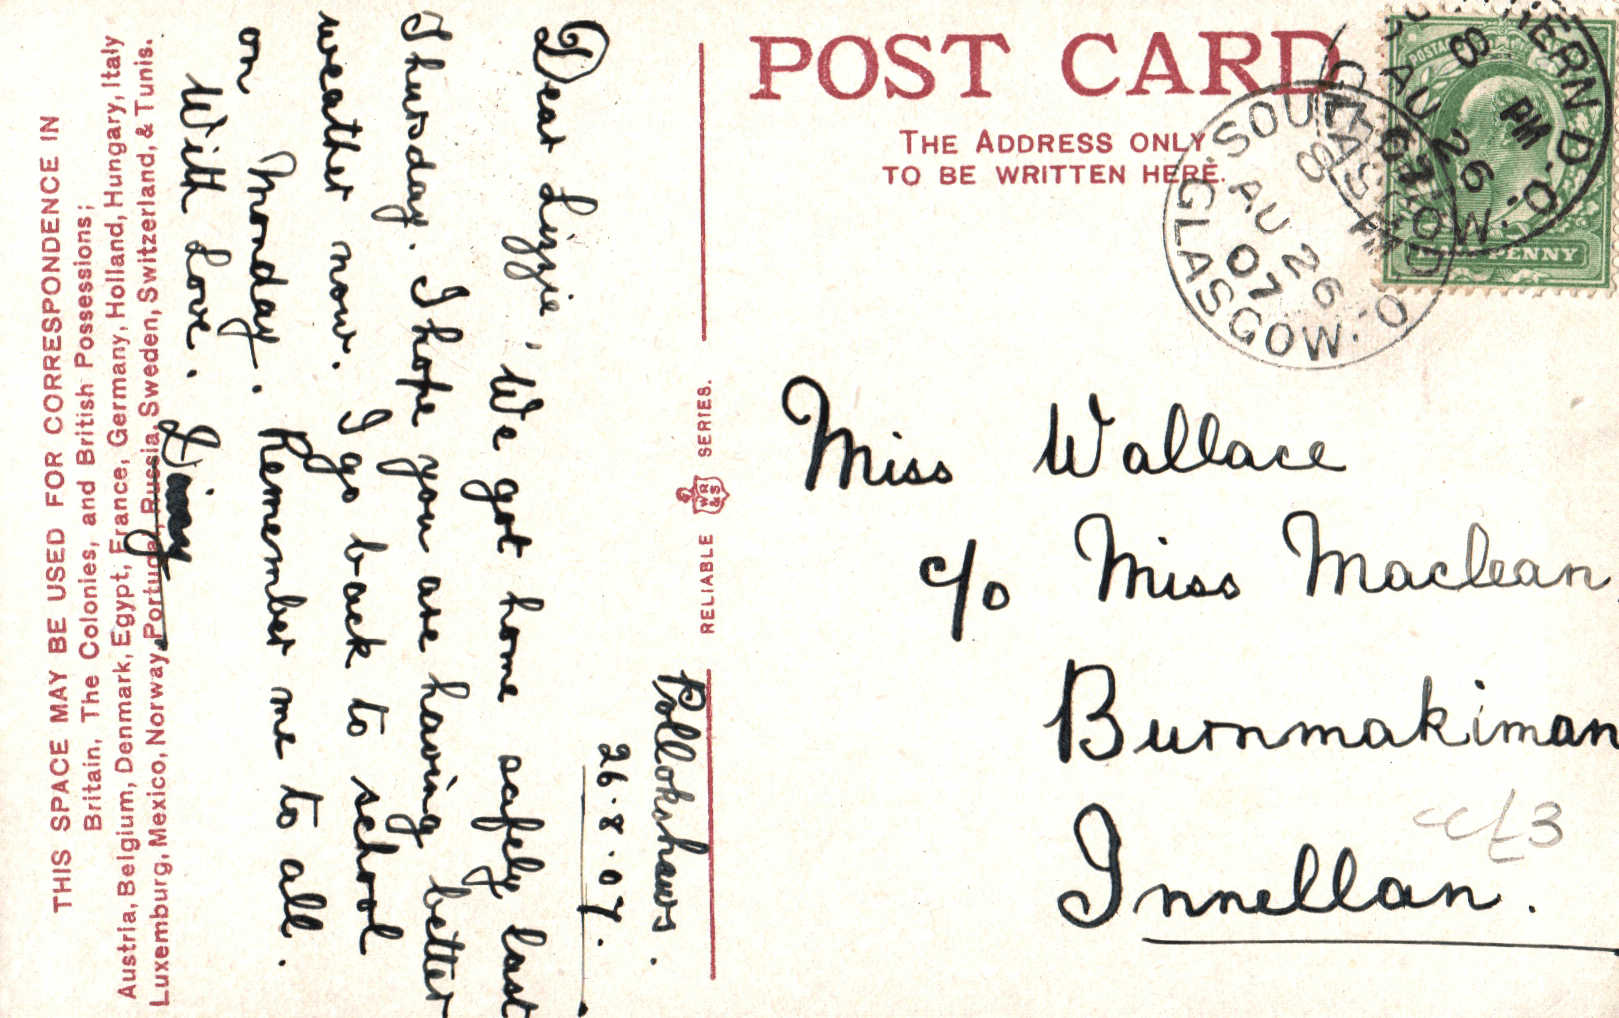 THIS SPACE MAY BE USED FOR CORRESPONDENCE IN
Britain, The Colonies, and British Possessions;
Austria, Belgium, Denmark, Egypt, France, Germany, Holland, Hungary, Italy
Luxemburg, Mexico, Norway, Portugal, Russia, Sweden, Switzerland, & Tunis.
Pollokshaws.
26.8.07.
Dear Lizzie, We got home safely last
Thursday. I hope you are having better
weather now. I go back to school
on Monday. Remember me to all.
With Love.
RELIABLE WR&S SERIES.
POST CARD
THE ADDRESS ONLY
TO BE WRITTEN HERE.
SOUTHERN D.O.
8 PM
AU 26
07
GLASGOW
SOUTHERN D.O.
8 PM
AU 26
07
GLASGOW
POSTAGE
HALFPENNY
Miss Wallace
c/o Miss Maclean
Burnmakiman
Innellan.